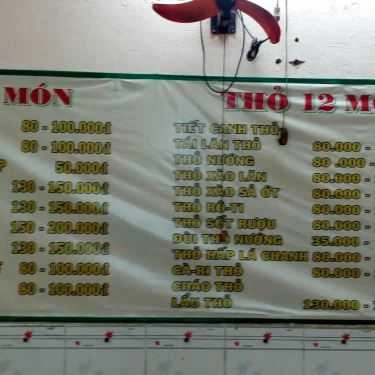 MÓN
80 - 100.000đ
80 - 100.000đ
50.000đ
130 - 150.000đ
130 - 150.000đ
150 - 200.000đ
130 - 150.000đ
80 - 100.000đ
80 - 100.000đ
THỎ 12
TIẾT CANH THỎ
TÁI LĂN THỎ 80.000 -
THỎ NƯỚNG 80.000 -
THỎ XÀO LĂN 80.000 -
THỎ XÀO SẢ ỚT 80.000 -
THỎ RÔ-TI 80.000 -
THỎ SỐT RƯỢU 80.000 -
ĐÙI THỎ NƯỚNG 35.000 -
THỎ HẤP LÁ CHANH 80.000 -
CÀ-RI THỎ 80.000 -
CHÁO THỎ
LẨU THỎ 130.000 -